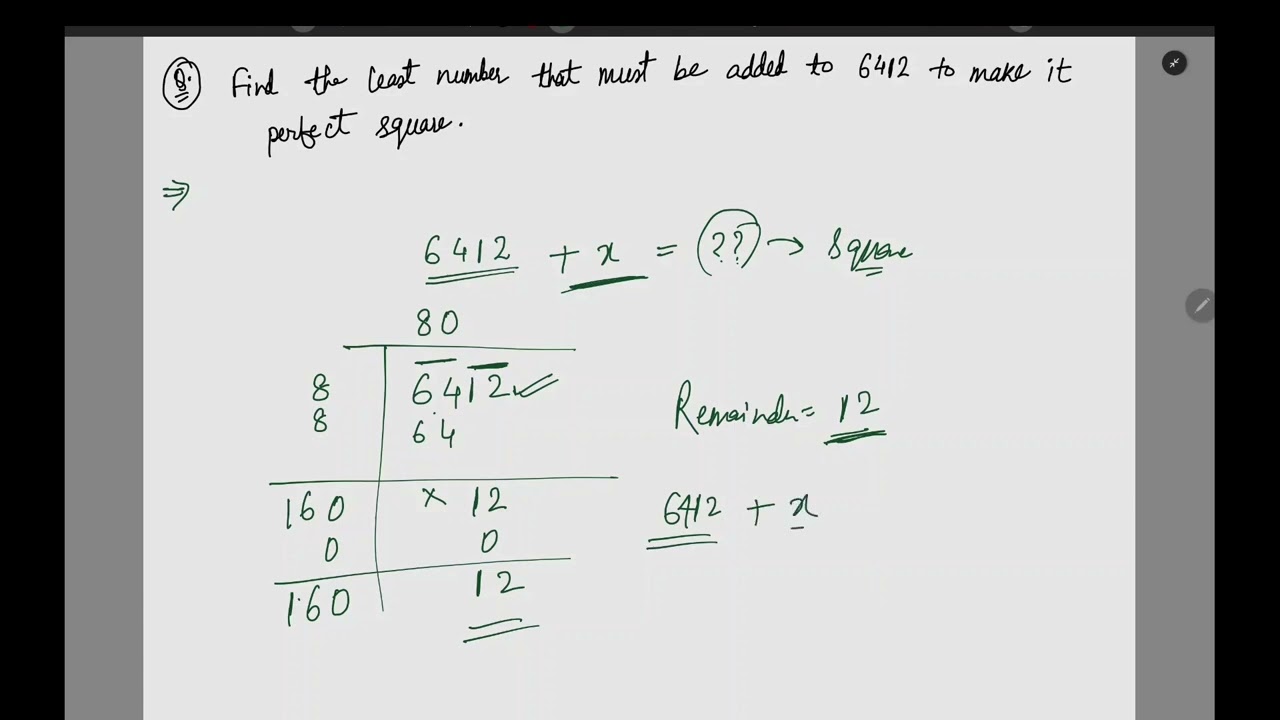 Q. Find the least number that must be added to 6412 to make it
perfect square.
⇒
6412 + x = ?? → square
80
8 6412
8 64
160 × 12
0 0
160 12
Remainder = 12
6412 + x